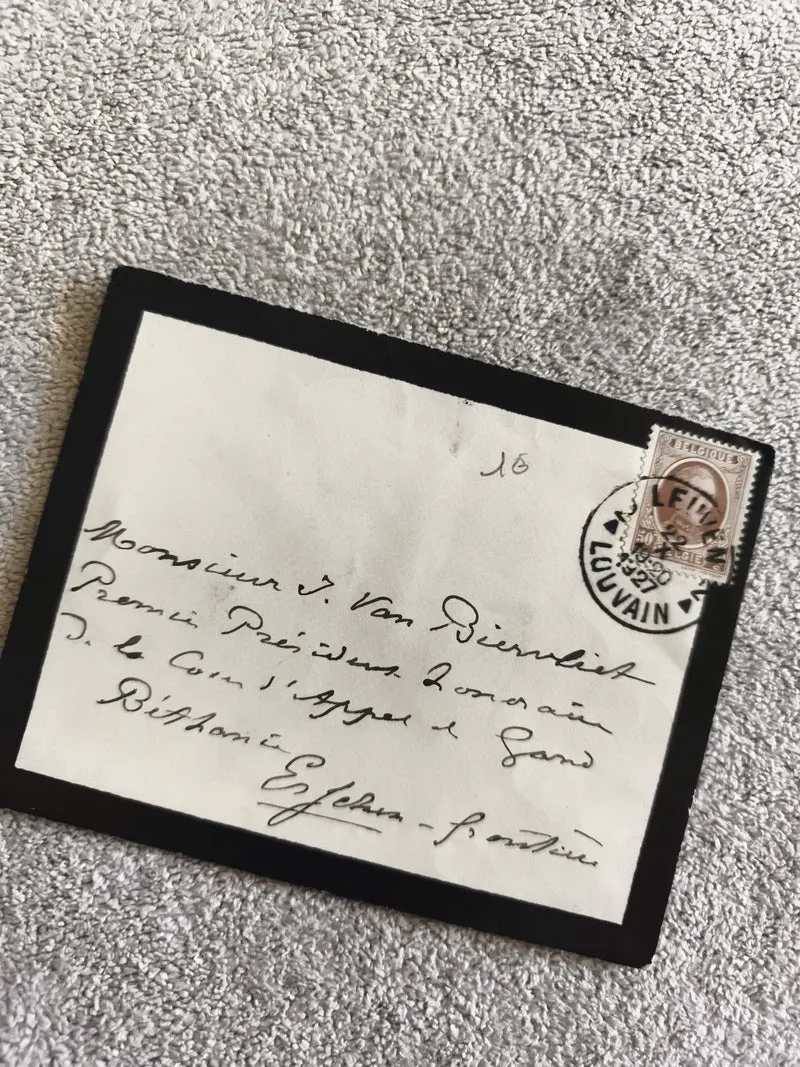 16
BELGIQUE
LEUVEN 2
22
X
19-20
1927
LOUVAIN 2
Monsieur J. Van Biervliet
Premier Président honoraire
de la Cour d'Appel de Gand
Béthanie
frontière